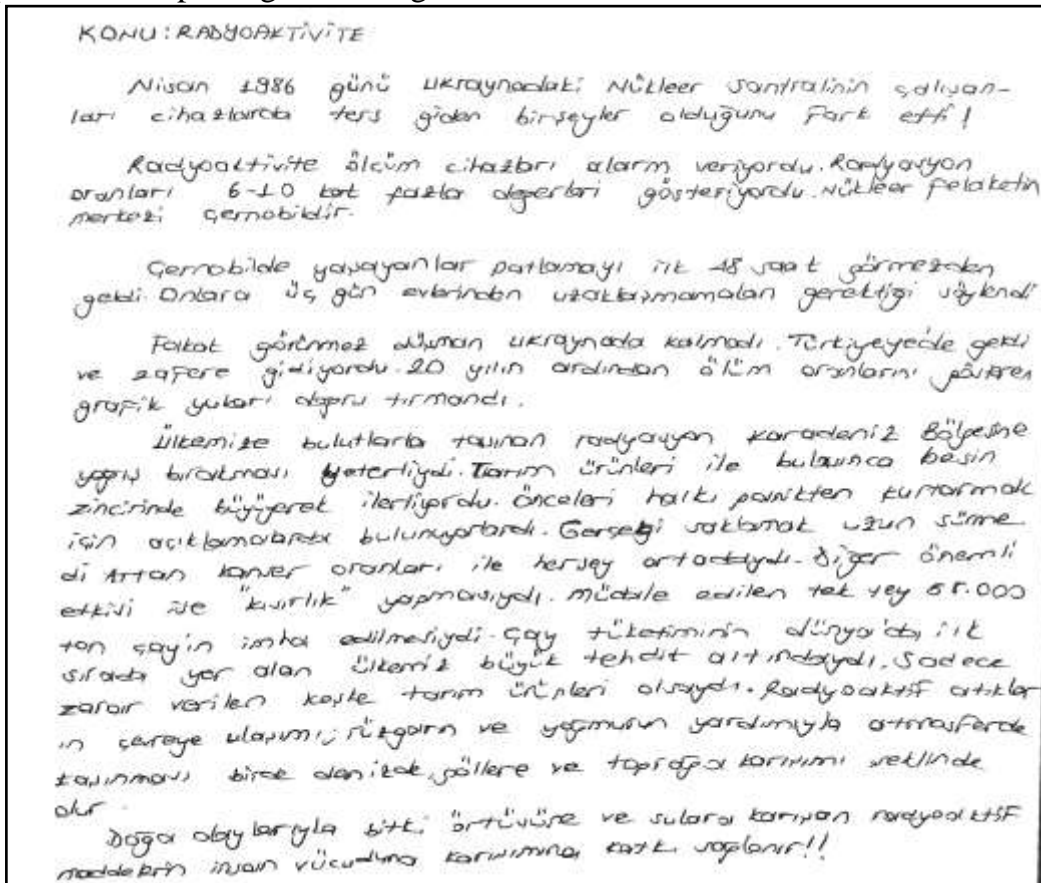 KONU : RADYOAKTİVİTE
Nisan 1986 günü Ukraynadaki Nükleer Santralinin çalışan-
ları cihazlarda ters giden birşeyler olduğunu Fark etti !
Radyoaktivite ölçüm cihazları alarm veriyordu. Radyasyon
oranları 6-10 kat fazla değerleri gösteriyordu. Nükleer felaketin
merkezi Çernobildir.
Çernobilde yaşayanlar patlamayı ilk 48 saat görmezden
geldi. Onlara üç gün evlerinden uzaklaşmamaları gerektiği söylendi
Fakat görünmez düşman Ukraynada kalmadı. Türkiyeyede geldi
ve zafere gidiyordu. 20 yılın ardından ölüm oranlarını gösteren
grafik yukarı doğru tırmandı.
Ülkemize bulutlarla taşınan radyasyon Karadeniz Bölgesine
yağış bırakması yeterliydi. Tarım ürünleri ile bulaşınca besin
zincirinde büyüyerek ilerliyordu. Önceleri halkı panikten kurtarmak
için açıklamalarda bulunuyorlardı. Gerçeği saklamak uzun sürme
di Artan kanser oranları ile herşey ortadaydı. Diğer önemli
etkisi ise "kısırlık" yapmasıydı. müdale edilen tek şey 58.000
ton çayın imha edilmesiydi. Çay tüketiminin dünya'da ilk
sırada yer alan ülkemiz büyük tehdit altındaydı. Sadece
zarar verilen keşke tarım ürünleri olsaydı. Radyoaktif atıklar
ın çevreye ulaşımı, rüzgarın ve yağmurun yardımıyla atmosferde
taşınması birde denizde, göllere ve toprağa karışımı şeklinde
olur.
Doğa olaylarıyla bitki örtüsüne ve sulara karışan radyoaktif
maddelerin insan vücuduna karışımına katkı sağlanır!!